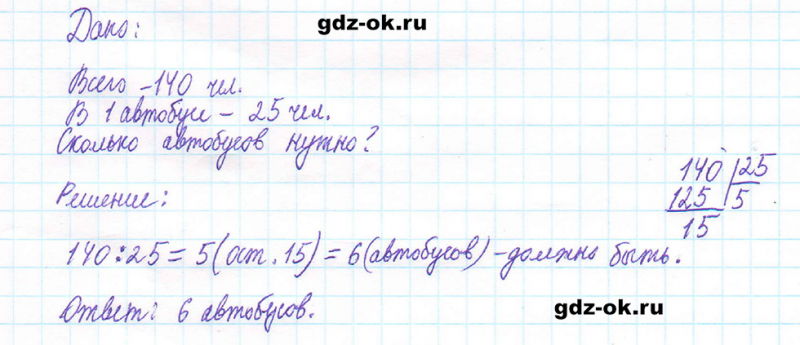 gdz-ok.ru
Дано:
Всего - 140 чел.
В 1 автобусе - 25 чел.
Сколько автобусов нужно?
140 25
125 5
15
Решение:
140 : 25 = 5 (ост. 15) = 6 (автобусов) - должно быть.
Ответ: 6 автобусов.
gdz-ok.ru